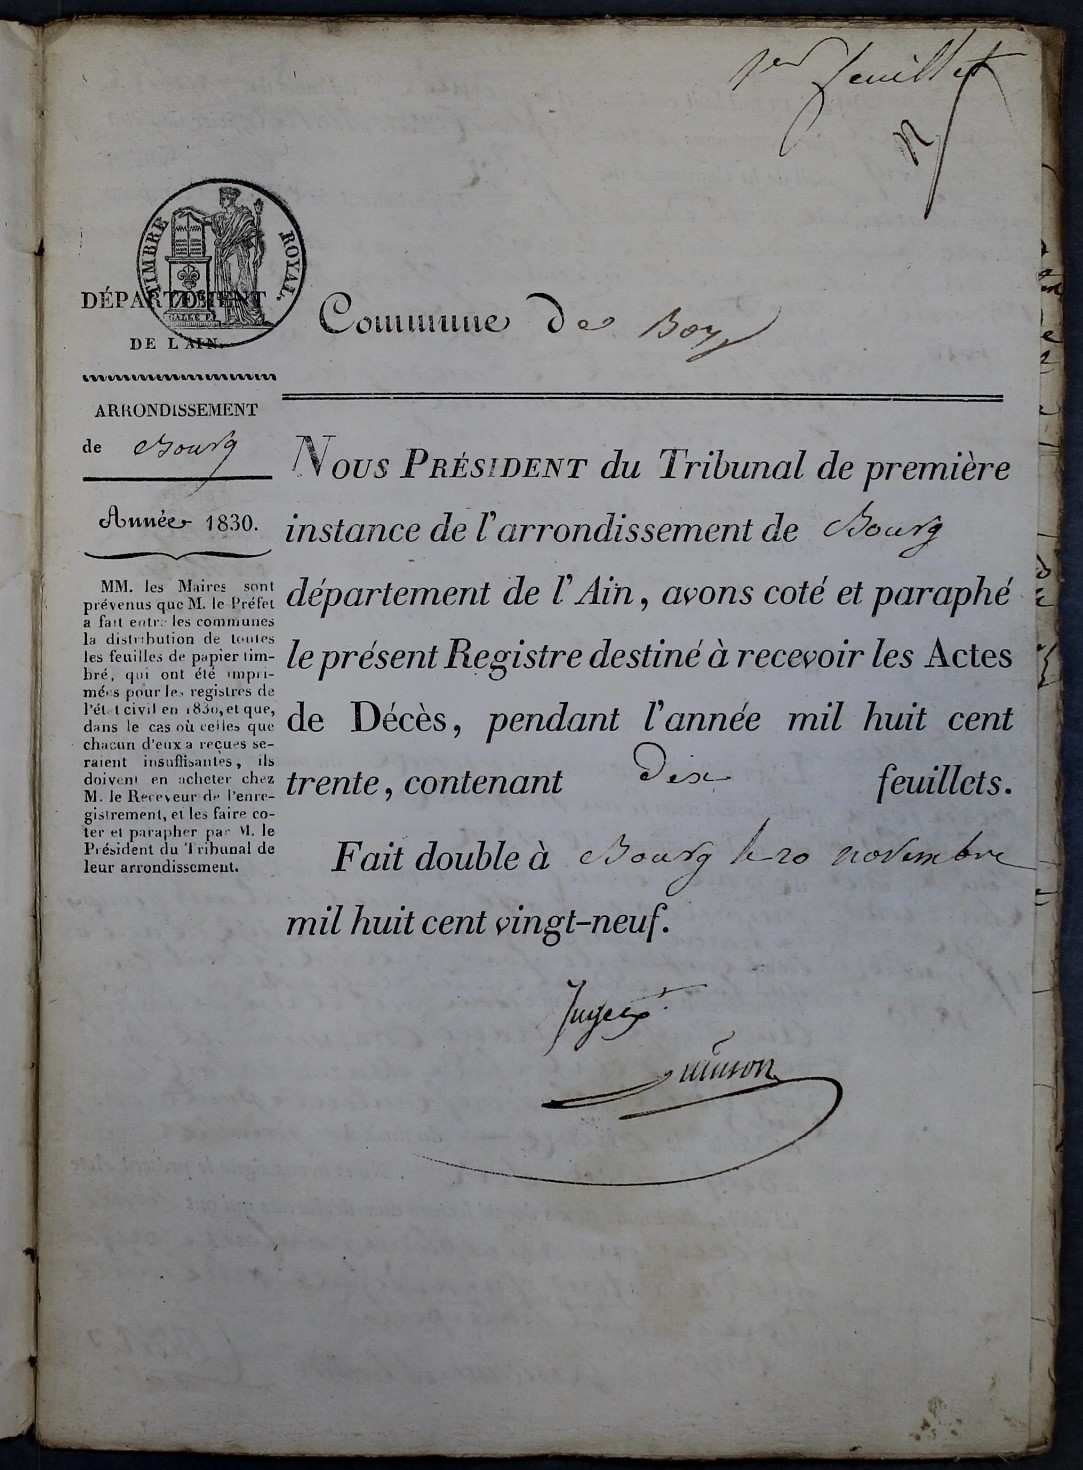 1er feuillet
TIMBRE ROYAL.
DÉPARTEMENT
DE L'AIN.
Commune de Boz
ARRONDISSEMENT
de Bourg
Année 1830.
MM. les Maires sont
prévenus que M. le Préfet
a fait entre les communes
la distribution de toutes
les feuilles de papier tim-
bré, qui ont été impri-
mées pour les registres de
l'état civil en 1830, et que,
dans le cas où celles que
chacun d'eux a reçues se-
raient insuffisantes, ils
doivent en acheter chez
M. le Receveur de l'enre-
gistrement, et les faire co-
ter et parapher par M. le
Président du Tribunal de
leur arrondissement.
NOUS PRÉSIDENT du Tribunal de première
instance de l'arrondissement de Bourg
département de l'Ain, avons coté et paraphé
le présent Registre destiné à recevoir les Actes
de Décès, pendant l'année mil huit cent
trente, contenant Dix feuillets.
Fait double à Bourg le 20 novembre
mil huit cent vingt-neuf.